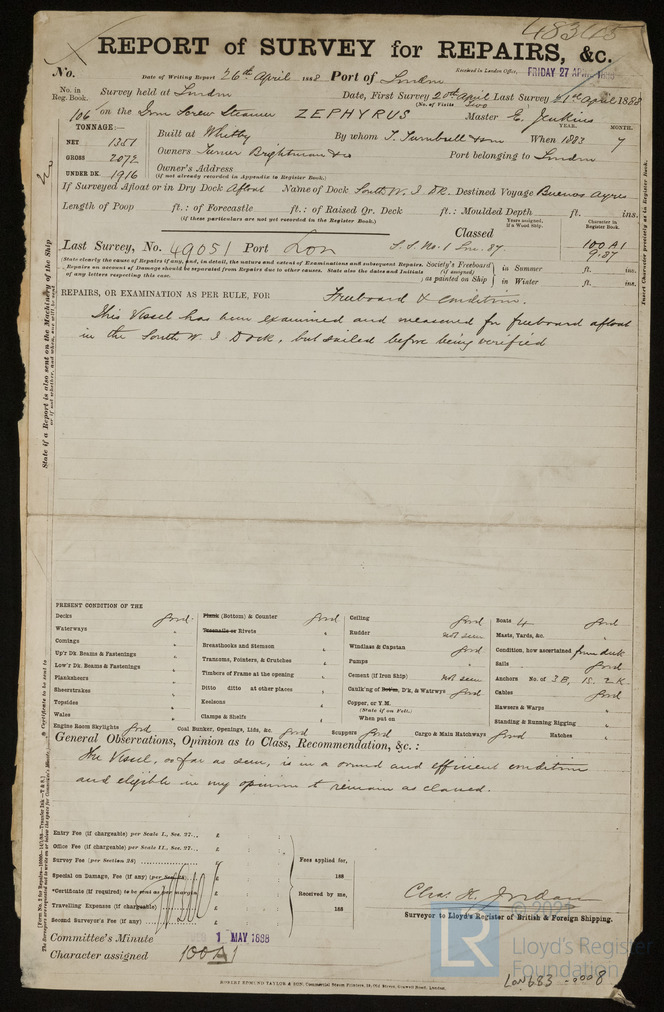 48345
REPORT of SURVEY for REPAIRS, &c.
No. Date of Writing Report 26th April 1888 Port of London Received in London Office, FRIDAY 27 APRIL 1888
No. in Reg. Book. Survey held at London Date, First Survey 20th April Last Survey 21st April 1888
(No. of Visits two)
106 on the Iron Screw Steamer ZEPHYRUS Master E. Jenkins
TONNAGE:— YEAR. MONTH.
NET 1351 Built at Whitby By whom T. Turnbull & Son When 1883 7
GROSS 2072 Owners Turner Brightman & Co Port belonging to London
UNDER DK. 1916 Owner's Address
(if not already recorded in Appendix to Register Book.)
If Surveyed Afloat or in Dry Dock Afloat Name of Dock South W. I DK. Destined Voyage Buenos Ayres
Length of Poop ft.: of Forecastle ft.: of Raised Qr. Deck ft.: Moulded Depth ft. ins.
(if these particulars are not yet recorded in the Register Book.)
Years assigned, if a Wood Ship. Character in Register Book.
Classed
Last Survey, No. 49051 Port Lon S.S. No. 1 Lon. 87. 100 A1
9.87
(State clearly the cause of Repairs if any, and, in detail, the nature and extent of Examinations and subsequent Repairs.
Repairs on account of Damage should be separated from Repairs due to other causes. State also the dates and Initials
of any letters respecting this case.
Society's Freeboard (if assigned) as painted on Ship in Summer ft. ins.
in Winter ft. ins.
REPAIRS, OR EXAMINATION AS PER RULE, FOR Freeboard & condition.
This Vessel has been examined and measured for freeboard afloat
in the South W. I Dock, but sailed before being verified
PRESENT CONDITION OF THE
Decks good. Plank (Bottom) & Counter good Ceiling good Boats 4 good
Waterways " Treenails or Rivets " Rudder not seen Masts, Yards, &c. "
Comings " Breasthooks and Stemson " Windlass & Capstan good Condition, how ascertained from deck
Up'r Dk. Beams & Fastenings " Transoms, Pointers, & Crutches " Pumps " Sails good
Low'r Dk. Beams & Fastenings " Timbers of Frame at the opening " Cement (if Iron Ship) not seen Anchors No. of 3 B, 1 S. 2 K.
Planksheers " Ditto ditto at other places " Caulk'ng of Bot'm, D'k, & Watrwys good Cables good
Sheerstrakes " Keelsons " Copper, or Y.M. Hawsers & Warps "
Topsides " Clamps & Shelfs " (State if on Felt.) Standing & Running Rigging "
Wales " When put on
Engine Room Skylights good Coal Bunker, Openings, Lids, &c. good Scuppers good Cargo & Main Hatchways good Hatches "
General Observations, Opinion as to Class, Recommendation, &c.:
The Vessel, so far as seen, is in a sound and efficient condition
and eligible in my opinion to remain as classed.
Entry Fee (if chargeable) per Scale I., Sec. 27... £
Office Fee (if chargeable) per Scale II., Sec. 27... £
Survey Fee (per Section 28) £
Special on Damage, Fee (if any) (per Sec. 28) £
*Certificate (if required) to be sent as per margin £
Travelling Expenses (if chargeable) £
Second Surveyor's Fee (if any) £
Fees applied for,
188
Received by me,
188
Chas. H. Jordan
Surveyor to Lloyd's Register of British & Foreign Shipping.
Committee's Minute 1 MAY 1888
Character assigned 100A1
ROBERT EDMUND TAYLOR & SON, Commercial Steam Printers, 19, Old Street, Goswell Road, London.
State if a Report is also sent on the Machinery of the Ship
Insert Character precisely as in Register Book.
© 202
LR
Lloyd's Register
Foundation
LON683-0008